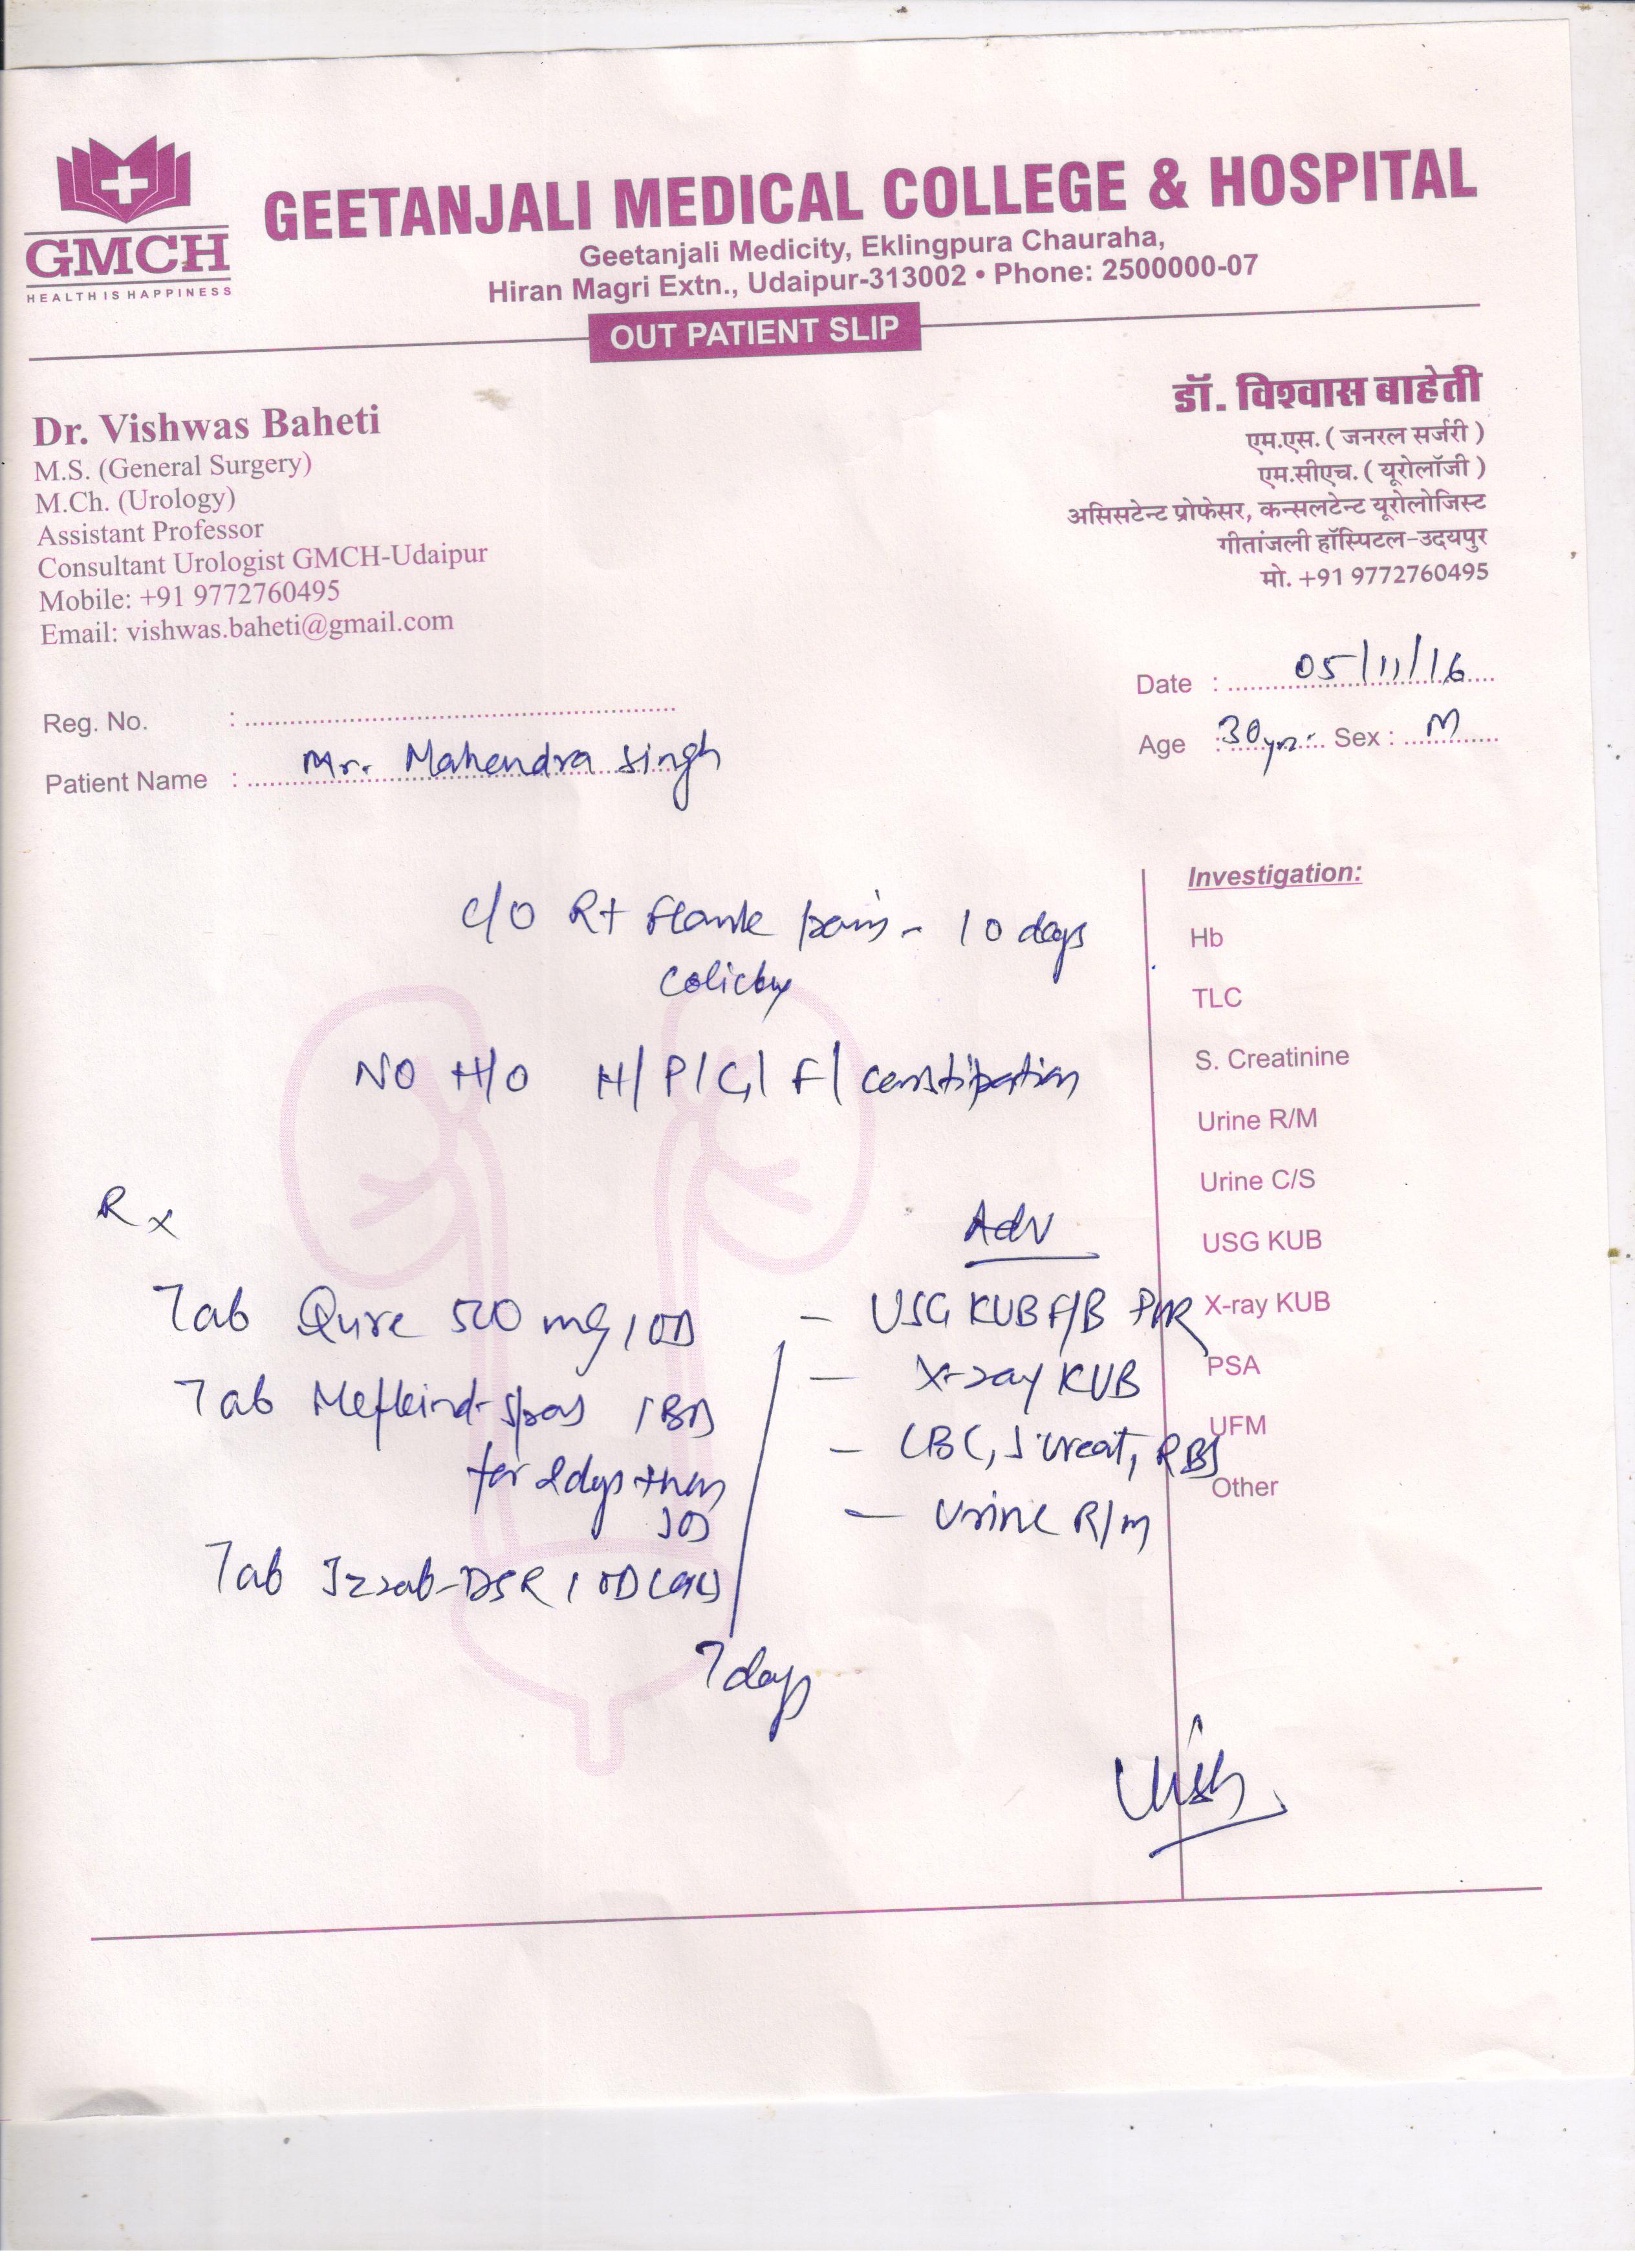 GMCH
HEALTH IS HAPPINESS
GEETANJALI MEDICAL COLLEGE & HOSPITAL
Geetanjali Medicity, Eklingpura Chauraha,
Hiran Magri Extn., Udaipur-313002 • Phone: 2500000-07
OUT PATIENT SLIP
Dr. Vishwas Baheti
M.S. (General Surgery)
M.Ch. (Urology)
Assistant Professor
Consultant Urologist GMCH-Udaipur
Mobile: +91 9772760495
Email: vishwas.baheti@gmail.com
डॉ. विश्वास बाहेती
एम.एस. ( जनरल सर्जरी )
एम.सीएच. ( यूरोलॉजी )
असिसटेन्ट प्रोफेसर, कन्सलटेन्ट यूरोलोजिस्ट
गीतांजली हॉस्पिटल-उदयपुर
मो. +91 9772760495
Date : 05/11/16
Reg. No. :
Age : 30yrs. Sex : M
Patient Name : Mr. Mahendra Singh
c/o Rt flank pain - 10 days
colicky
NO H/O H/P/G/F/constipation
Rx
Tab Qure 500 mg 1 OD
Tab Mefkind-spas 1 BD
for 2 days then
Tab DSR 1 OD
7 days
Adv
- USG KUB F/B PVR
- X-ray KUB
- CBC, S creat, RBS
- Urine R/M
Investigation:
Hb
TLC
S. Creatinine
Urine R/M
Urine C/S
USG KUB
X-ray KUB
PSA
UFM
Other